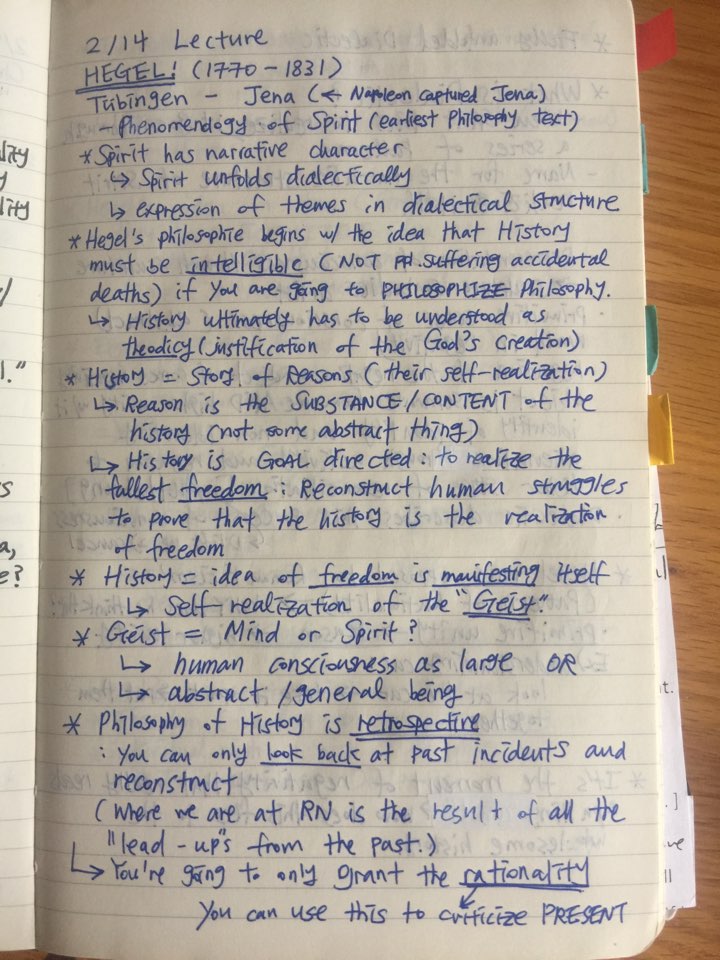 2/14 Lecture
HEGEL! (1770-1831)
Tübingen - Jena (← Napoleon captured Jena)
- Phenomenology of Spirit (earliest Philosophy text)
* Spirit has narrative character
↳ Spirit unfolds dialectically
↳ expression of themes in dialectical structure
* Hegel's philosophie begins w/ the idea that History
must be intelligible (NOT suffering accidental
deaths) if you are going to PHILOSOPHIZE Philosophy.
↳ History ultimately has to be understood as
theodicy (justification of the God's creation)
* History = Story of Reasons (their self-realization)
↳ Reason is the SUBSTANCE/CONTENT of the
history (not some abstract thing)
↳ History is GOAL directed: to realize the
fullest freedom : Reconstruct human struggles
to prove that the history is the realization
of freedom
* History = idea of freedom is manifesting itself
↳ Self-realization of the "Geist."
* Geist = Mind or Spirit?
↳ human consciousness as large OR
↳ abstract/general being
* Philosophy of History is retrospective
: You can only look back at past incidents and
reconstruct
(Where we are at RN is the result of all the
"lead-up"s from the past.)
↳ You're going to only grant the rationality
You can use this to criticize PRESENT